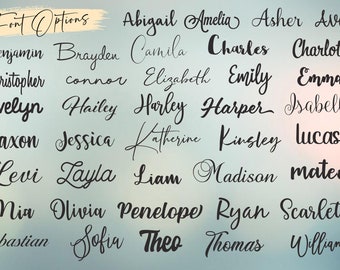 Font Options
Abigail Amelia Asher Av
enjamin Brayden Camila Charles Charlot
ristopher connor Elizabeth Emily Emma
velyn Hailey Harley Harper Isabell
axon Jessica Katherine Kinsley lucas
Levi Layla Liam Madison mate
Mia Olivia Penelope Ryan Scarlet
ebastian Sofia Theo Thomas William